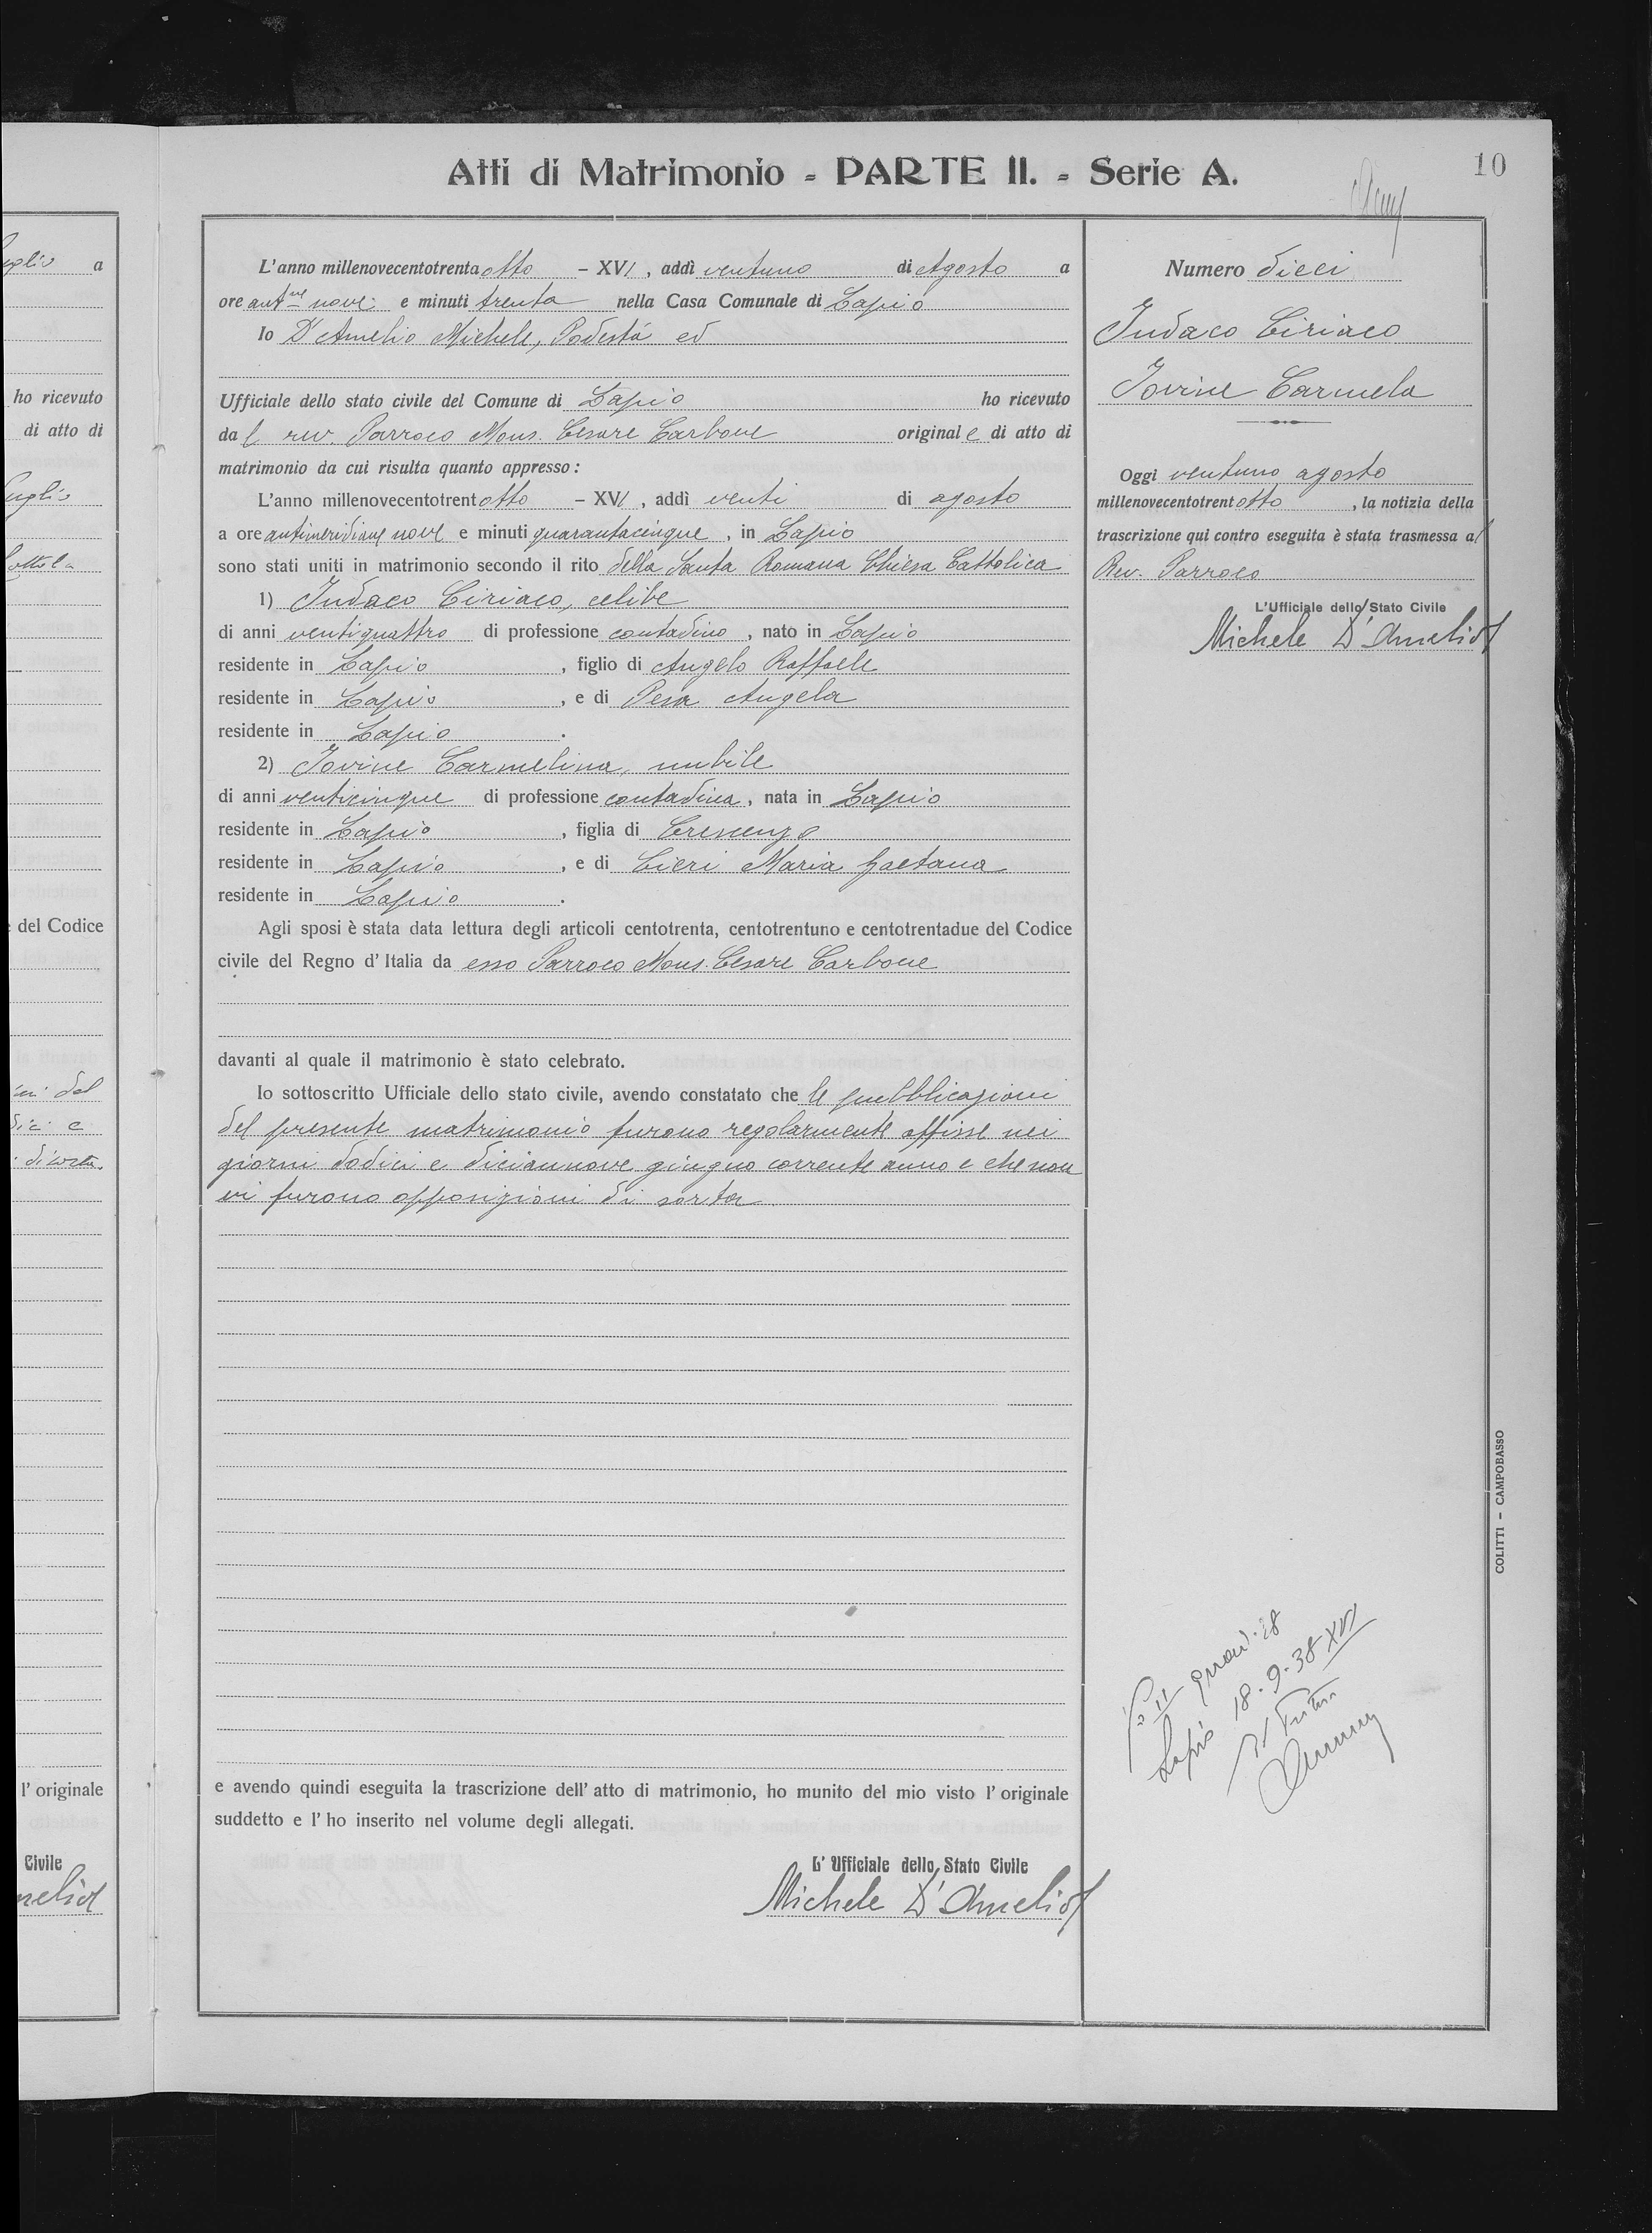 Atti di Matrimonio - PARTE II. - Serie A.
10
L'anno millenovecentotrenta otto - XVI, addì ventuno di Agosto a
ore ant.ne nove e minuti trenta nella Casa Comunale di Lapio
Io D'Amelio Michele, Podestà ed
Ufficiale dello stato civile del Comune di Lapio ho ricevuto
dal rev. Parroco Mons. Cesare Carbone originale di atto di
matrimonio da cui risulta quanto appresso:
L'anno millenovecentotrentotto - XVI, addì venti di agosto
a ore antimeridiane nove e minuti quarantacinque, in Lapio
sono stati uniti in matrimonio secondo il rito della Santa Romana Chiesa Cattolica
1) Iudaco Ciriaco, celibe
di anni ventiquattro di professione contadino, nato in Lapio
residente in Lapio, figlio di Angelo Raffaele
residente in Lapio, e di Pesa Angela
residente in Lapio.
2) Iovine Carmelina, nubile
di anni venticinque di professione contadina, nata in Lapio
residente in Lapio, figlia di Crescenzo
residente in Lapio, e di Cieri Maria Gaetana
residente in Lapio.
Agli sposi è stata data lettura degli articoli centotrenta, centotrentuno e centotrentadue del Codice
civile del Regno d'Italia da esso Parroco Mons. Cesare Carbone
davanti al quale il matrimonio è stato celebrato.
Io sottoscritto Ufficiale dello stato civile, avendo constatato che le pubblicazioni
del presente matrimonio furono regolarmente affisse nei
giorni dodici e diciannove giugno corrente anno e che non
vi furono opposizioni di sorta
e avendo quindi eseguita la trascrizione dell'atto di matrimonio, ho munito del mio visto l'originale
suddetto e l'ho inserito nel volume degli allegati.
L'Ufficiale dello Stato Civile
Michele D'Amelio
Numero dieci
Iudaco Ciriaco
Iovine Carmela
Oggi ventuno agosto
millenovecentotrentotto, la notizia della
trascrizione qui contro eseguita è stata trasmessa al
Rev. Parroco
L'Ufficiale dello Stato Civile
Michele D'Amelio
Lapio 18-9-38 XVI
COLITTI - CAMPOBASSO
uglio a
ho ricevuto
di atto di
uglio
del Codice
l'originale
Civile
melio